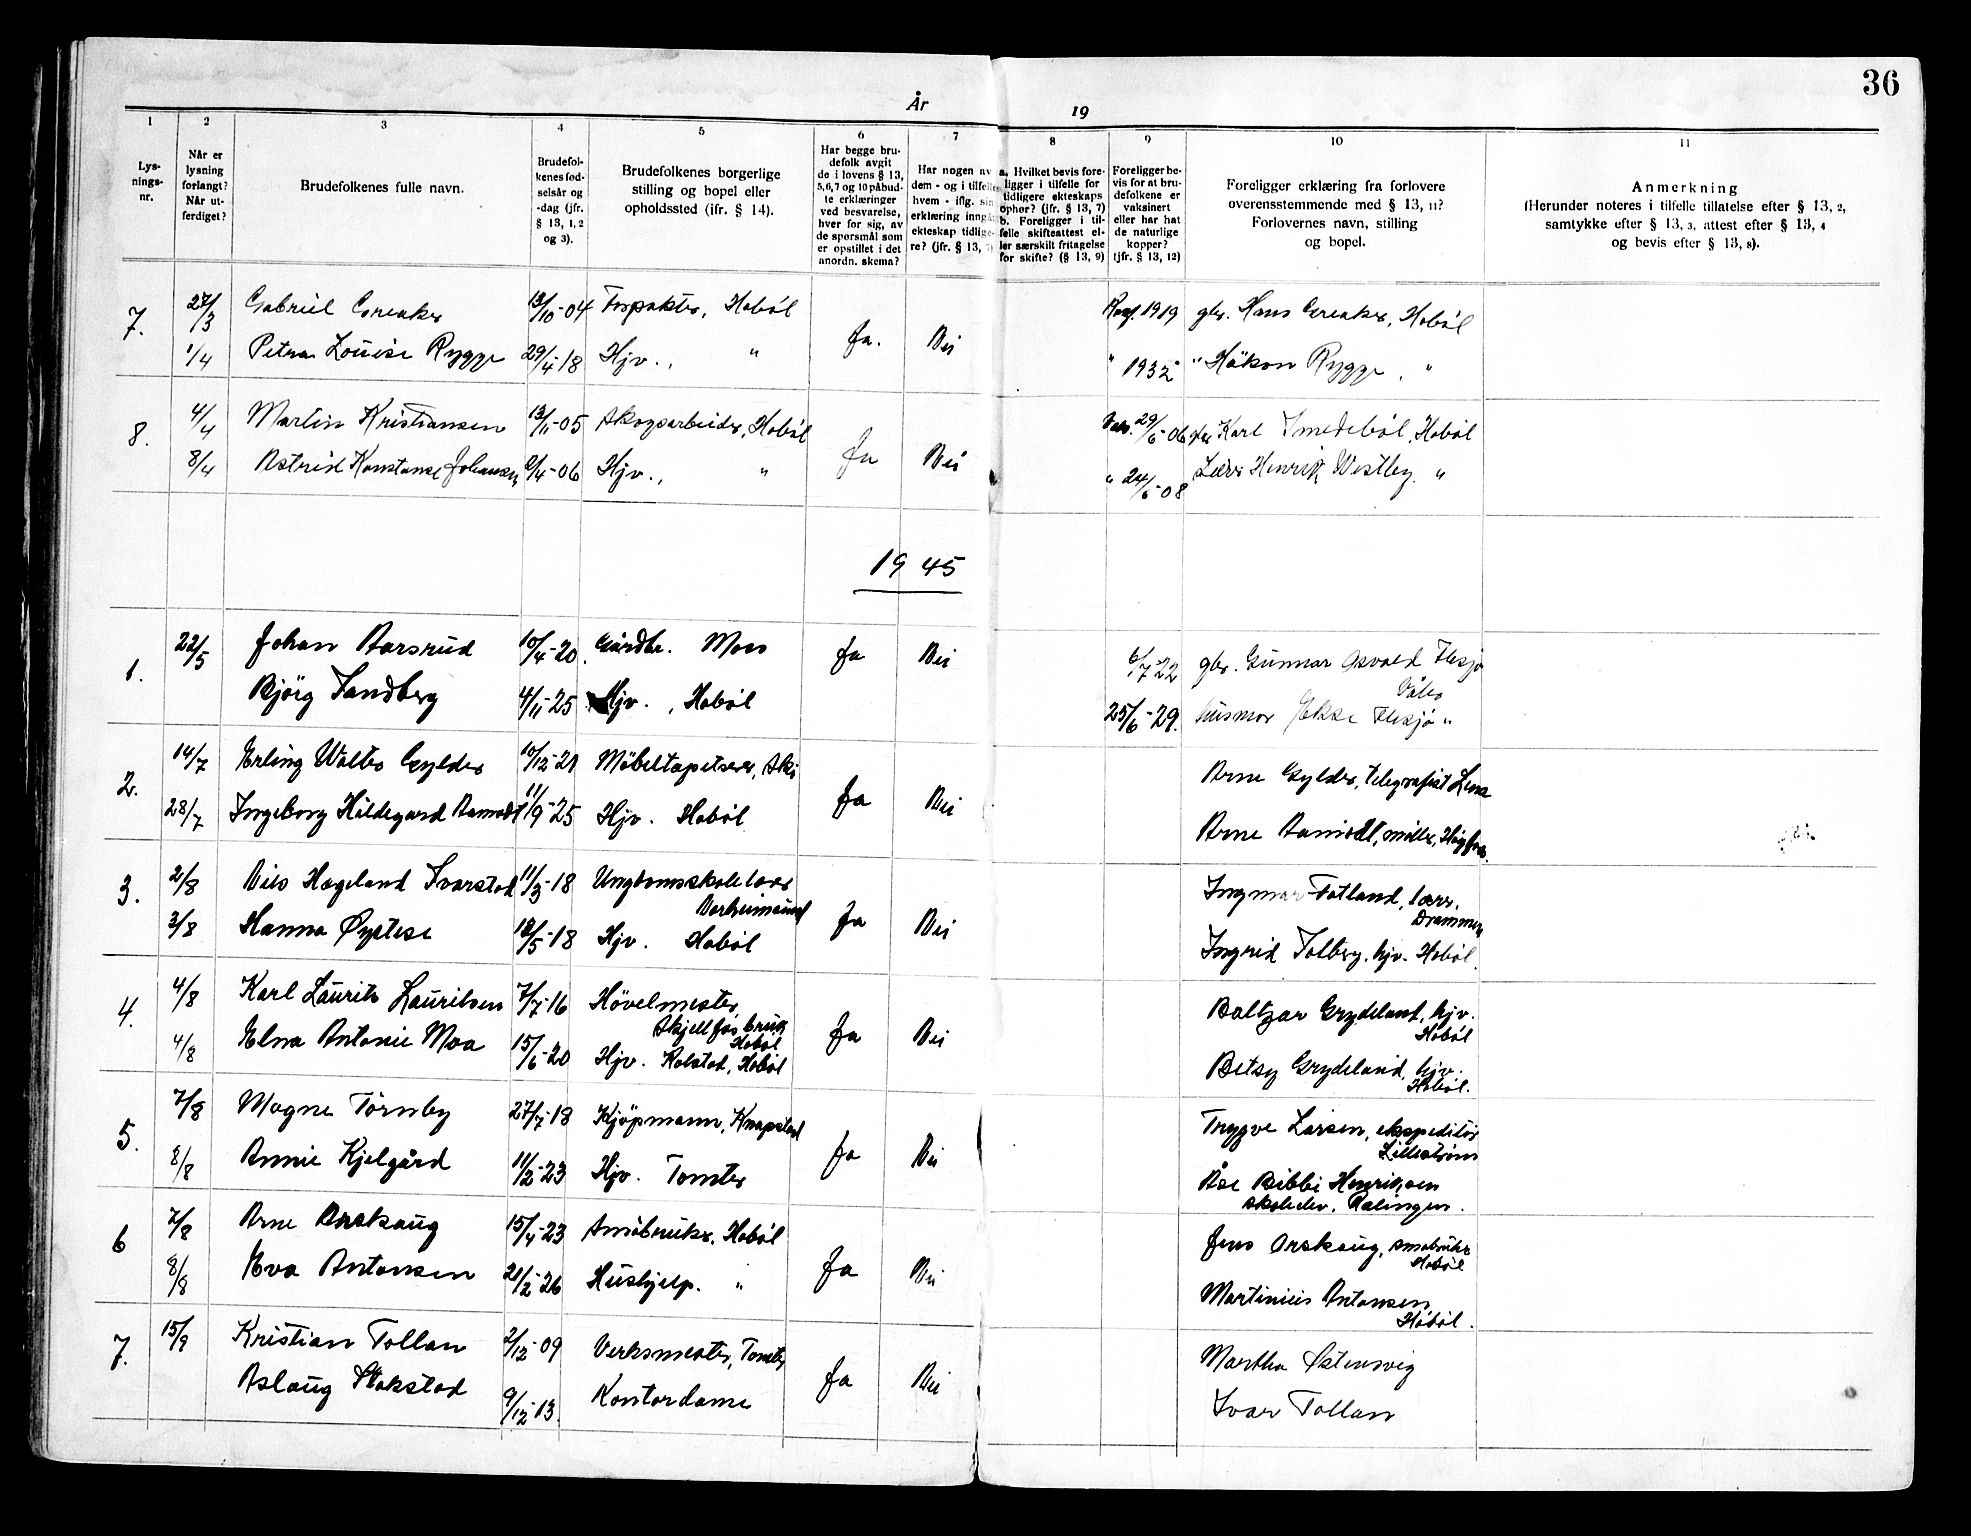 36
År
19
1 2 3 4 5 6 7 8 9 10 11
Lys-
nings-
nr.
Når er
lysning
forlangt?
Når ut-
ferdiget?
Brudefolkenes fulle navn.
Brudefol-
kenes fød-
selsår og
-dag (jfr.
§ 13, 1, 2
og 3).
Brudefolkenes borgerlige
stilling og bopel eller
opholdssted (ifr. § 14).
Har begge bru-
defolk avgit
de i lovens § 13,
5, 6, 7 og 10 påbud-
te erklæringer
ved besvarelse,
hver for sig, av
de spørsmål som
er opstillet i det
anordn. skema?
Har nogen av
dem - og i tilfelle
hvem - iflg. sin
erklæring inngå
ekteskap tidlige-
re? (jfr. § 13, 7)
a. Hvilket bevis fore-
ligger i tilfelle for
tidligere ekteskaps
ophør? (jfr. § 13, 7)
b. Foreligger i til-
felle skifteattest el-
ler særskilt fritagelse
for skifte? (§ 13, 9)
Foreligger be-
vis for at bru-
defolkene er
vaksinert
eller har hat
de naturlige
kopper?
(jfr. § 13, 12)
Foreligger erklæring fra forlovere
overensstemmende med § 13, 11?
Forlovernes navn, stilling
og bopel.
Anmerkning
(Herunder noteres i tilfelle tillatelse efter § 13, 2,
samtykke efter § 13, 3, attest efter § 13, 4
og bevis efter § 13, 8).
7. 27/3 Gabriel Greaker 13/10-04 Forpakter, Hobøl Ja. Nei 1919 gbr. Hans Greaker, Hobøl
1/4 Petra Louise Rygge 29/4-18 Hjv., " " 1932 " Håkon Rygge, "
8. 4/4 Martin Kristiansen 13/11-05 Skogsarbeider, Hobøl Ja Nei Vak. 29/6-06 Karl Smedsbøl, Hobøl
8/4 Astrid Konstanse Johansen 6/4-06 Hjv., " " 24/6-08 Lærer Henrik Westby. "
1945
1. 22/5 Johan Aarsrud 10/4-20. Gårdbr. Moss Ja Nei 6/7-22 gbr. Gunnar Osvald Flesjø
Våler
Bjørg Sandberg 4/11-25 Hjv., Hobøl 25/6-29. husmor Flesjø "
2. 14/7 Erling Walter Gylder 10/12-21 Möbeltapetserer, Ski Ja Nei Arne Gylder, telegrafist Lena
28/7 Ingeborg Hildegard Aamodt 11/9-25 Hjv. Hobøl Arne Aamodt, møller,
3. 2/8 Nils Hageland Svarstad 11/3-18 Ungdomsskolelærer
Norheimsund Ja Nei Ingmar Fotland, lærer,
Drammen
3/8 Hanna Øystese 12/5-18 Hjv. Hobøl Ingrid Solberg, hjv. Hobøl.
4. 4/8 Karl Laurits Lauritsen 7/7-16 Høvelmester,
Skjellfos bruk
Hobøl Ja Nei Baltzar Grydeland, hjv.
Hobøl
4/8 Elna Antonie Moa 15/6-20 Hjv. Rolstad, Hobøl Betsy Grydeland, hjv.
Hobøl.
5. 7/8 Magne Törnby 27/7-18 Kjøpmann, Knapstad Ja Nei Trygve Larsen, ekspeditør
Lillestrøm
8/8 Annie Kjelgård 11/2-23 Hjv. Tomter Åse Bibbi Henriksen
skoleelev, Rælingen.
6 7/8 Arne Orskaug 15/4-23 Småbruker, Hobøl Ja Nei Jens Orskaug, småbruker
Hobøl
8/8 Eva Antonsen 21/2-26 Hushjelp. " Martinius Antonsen
Hobøl.
7. 15/9 Kristian Tollan 2/12-09 Verksmester, Tomter Ja Nei Martha Østensvig
Aslaug Stokstad 9/12-13. Kontordame Ivar Tollan